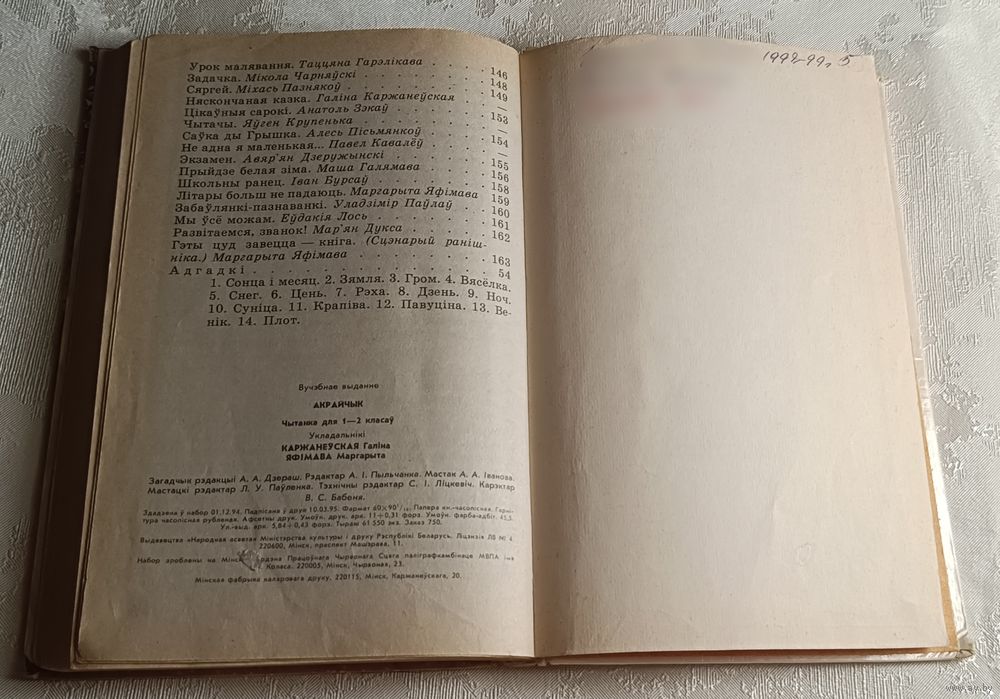 Урок малявання. Таццяна Гарэлікава . . . . 146
Задачка. Мікола Чарняўскі . . . . . . . 148
Сяргей. Міхась Пазнякоў . . . . . . . 149
Няскончаная казка. Галіна Каржанеўская . . —
Цікаўныя сарокі. Анатоль Зэкаў . . . . . 153
Чытачы. Яўген Крупенька . . . . . . . —
Саўка ды Грышка. Алесь Пісьмянкоў . . . . 154
Не адна я маленькая... Павел Кавалёў . . . . —
Экзамен. Авяр'ян Дзеружынскі . . . . . . 155
Прыйдзе белая зіма. Маша Галямава . . . . 156
Школьны ранец. Іван Бурсаў . . . . . . 158
Літары больш не падаюць. Маргарыта Яфімава 159
Забаўлянкі-пазнаванкі. Уладзімір Паўлаў . . 160
Мы ўсё можам. Еўдакія Лось . . . . . . 161
Развітаемся, званок! Мар'ян Дукса . . . . . 162
Гэты цуд завецца — кніга. (Сцэнарый раніш-
ніка.) Маргарыта Яфімава . . . . . . . 163
Адгадкі . . . . . . . . . . . . 54
1. Сонца і месяц. 2. Зямля. 3. Гром. 4. Вясёлка.
5. Снег. 6. Цень. 7. Рэха. 8. Дзень. 9. Ноч.
10. Суніца. 11. Крапіва. 12. Павуціна. 13. Ве-
нік. 14. Плот.
Вучэбнае выданне
АКРАЙЧЫК
Чытанка для 1—2 класаў
Укладальнікі
КАРЖАНЕЎСКАЯ Галіна
ЯФІМАВА Маргарыта
Загадчык рэдакцыі А. А. Дзераш. Рэдактар А. І. Пыльчанка. Мастак А. А. Іванова.
Мастацкі рэдактар Л. У. Паўленка. Тэхнічны рэдактар С. І. Ліцкевіч. Карэктар
В. С. Бабеня.
Здадзена ў набор 01.12.94. Падпісана ў друк 10.03.95. Фармат 60×90¹/₁₆. Папера кн.-часопісная. Гарні-
тура часопісная рубленая. Афсетны друк. Умоўн. друк. арк. 11+0,31 форз. Умоўн. фарба-адбіт. 45,5.
Ул.-выд. арк. 5,84+0,43 форз. Тыраж 61 550 экз. Заказ 750.
Выдавецтва «Народная асвета» Міністэрства культуры і друку Рэспублікі Беларусь. Ліцэнзія ЛВ № 4.
220600, Мінск, праспект Машэрава, 11.
Набор зроблены на Мінск ордэна Працоўнага Чырвонага Сцяга паліграфкамбінаце МВПА імя
Коласа. 220005, Мінск, Чырвоная, 23.
Мінская фабрыка каляровага друку, 220115, Мінск, Каржанеўскага, 20.
1998-99г 5
www.ay.by